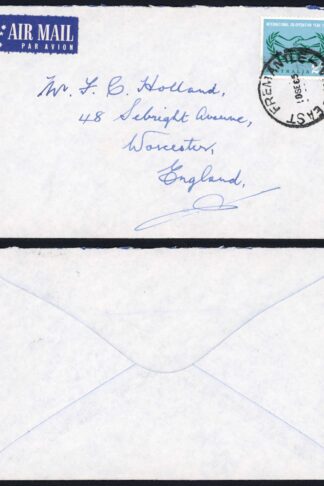 AIR MAIL
PAR AVION
INTERNATIONAL CO-OPERATION YEAR
AUSTRALIA
EAST FREMANTLE
Mr. F. C. Holland,
48 Sebright Avenue,
Worcester,
England.